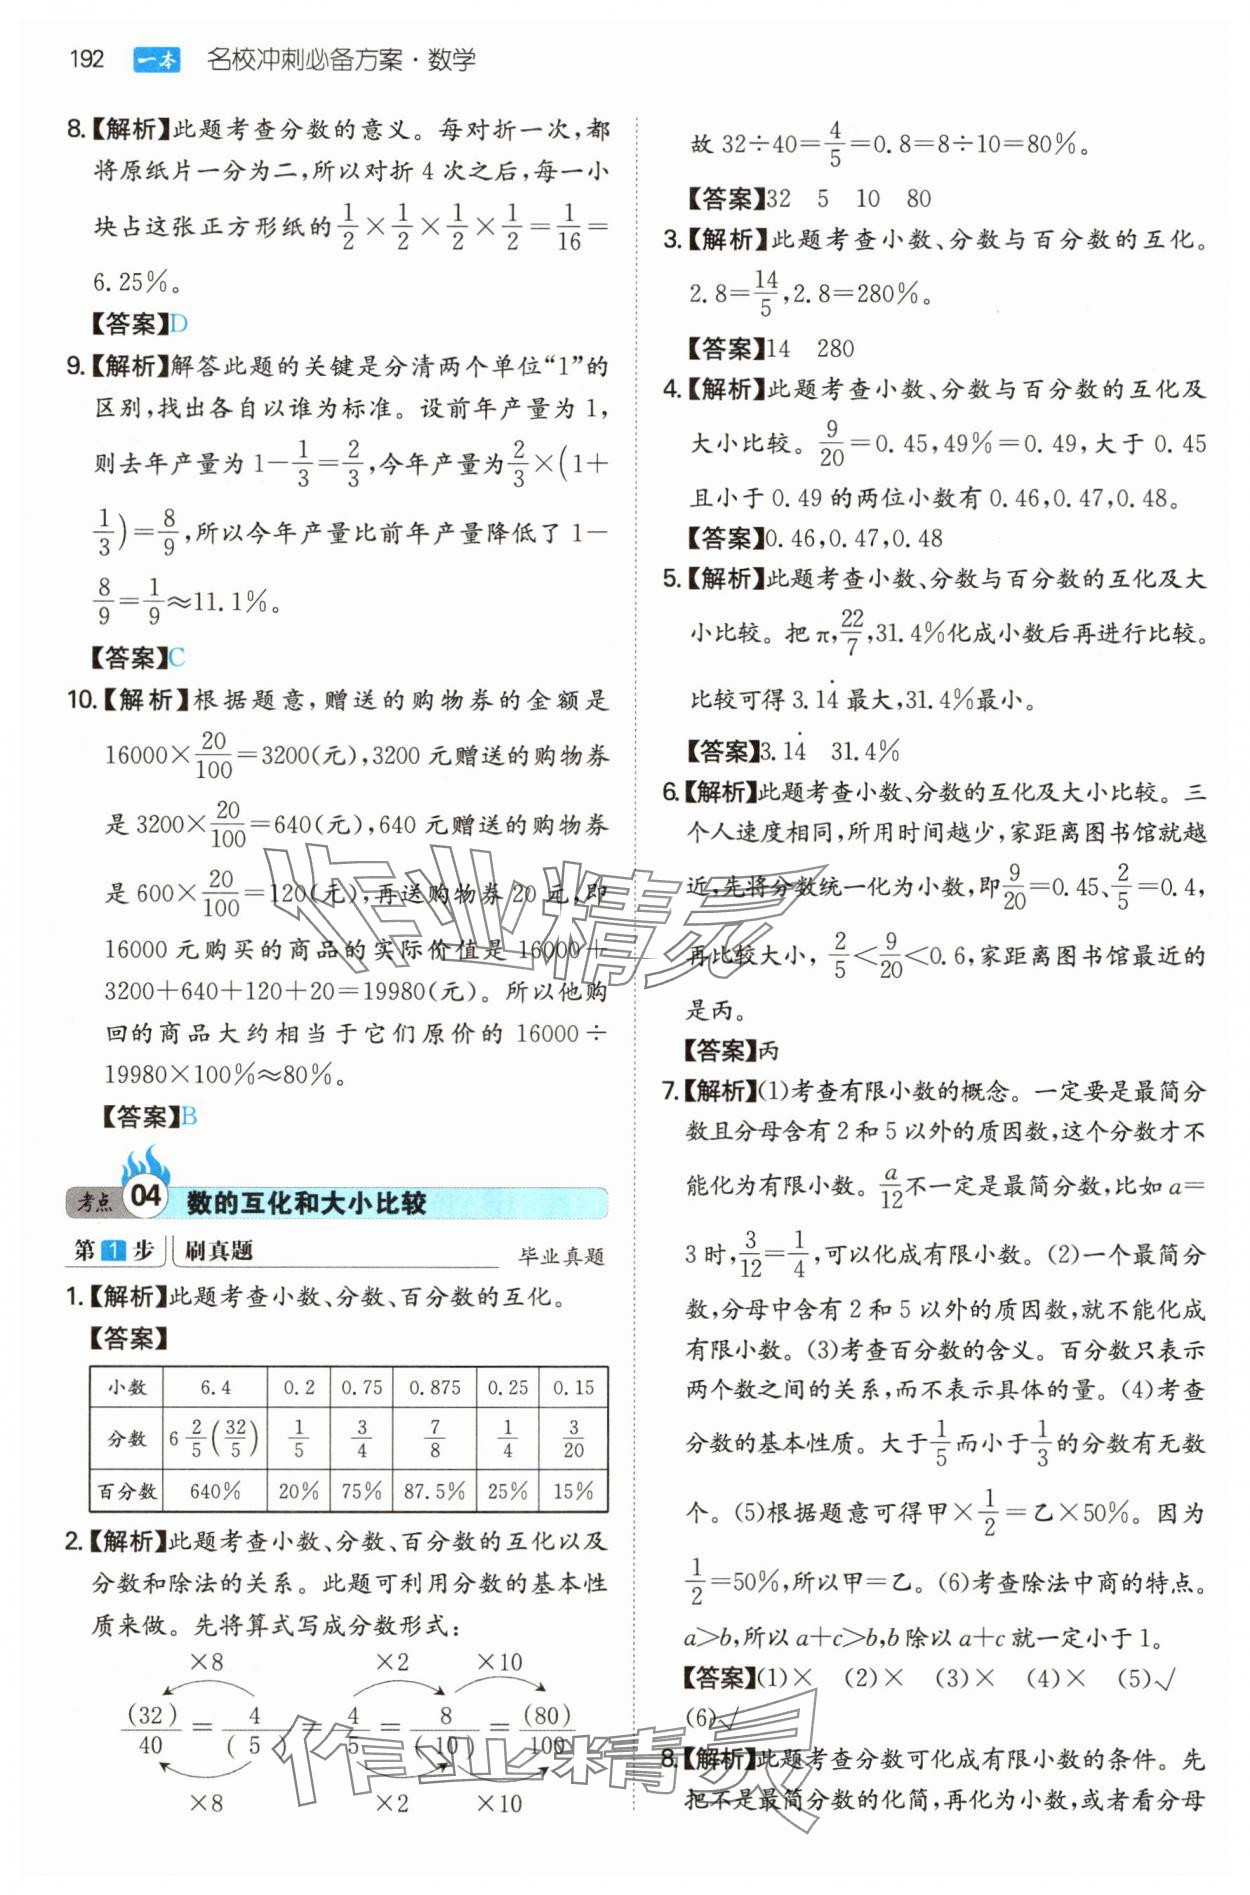 192 一本 名校冲刺必备方案·数学
8.【解析】此题考查分数的意义。每对折一次,都
将原纸片一分为二,所以对折 4 次之后,每一小
块占这张正方形纸的 1/2×1/2×1/2×1/2=1/16=
6.25%。
【答案】D
9.【解析】解答此题的关键是分清两个单位“1”的
区别,找出各自以谁为标准。设前年产量为 1,
则去年产量为 1-1/3=2/3,今年产量为 2/3×(1+
1/3)=8/9,所以今年产量比前年产量降低了 1-
8/9=1/9≈11.1%。
【答案】C
10.【解析】根据题意,赠送的购物券的金额是
16000×20/100=3200(元),3200 元赠送的购物券
是 3200×20/100=640(元),640 元赠送的购物券
是 600×20/100=120(元),再送购物券 20 元,即
16000 元购买的商品的实际价值是 16000+
3200+640+120+20=19980(元)。所以他购
回的商品大约相当于它们原价的 16000÷
19980×100%≈80%。
【答案】B
考点 04 数的互化和大小比较
第 1 步 刷真题 毕业真题
1.【解析】此题考查小数、分数、百分数的互化。
【答案】
小数 6.4 0.2 0.75 0.875 0.25 0.15
分数 6 2/5(32/5) 1/5 3/4 7/8 1/4 3/20
百分数 640% 20% 75% 87.5% 25% 15%
2.【解析】此题考查小数、分数、百分数的互化以及
分数和除法的关系。此题可利用分数的基本性
质来做。先将算式写成分数形式:
×8 ×2 ×10
(32)/40=4/(5)=4/5=8/(10)=(80)/100
×8 ×2 ×10
故 32÷40=4/5=0.8=8÷10=80%。
【答案】32 5 10 80
3.【解析】此题考查小数、分数与百分数的互化。
2.8=14/5,2.8=280%。
【答案】14 280
4.【解析】此题考查小数、分数与百分数的互化及
大小比较。9/20=0.45,49%=0.49,大于 0.45
且小于 0.49 的两位小数有 0.46,0.47,0.48。
【答案】0.46,0.47,0.48
5.【解析】此题考查小数、分数与百分数的互化及大
小比较。把 π,22/7,31.4%化成小数后再进行比较。
比较可得 3.14̇ 最大,31.4%最小。
【答案】3.1̇4 31.4%
6.【解析】此题考查小数、分数的互化及大小比较。三
个人速度相同,所用时间越少,家距离图书馆就越
近,先将分数统一化为小数,即9/20=0.45、2/5=0.4,
再比较大小,2/5<9/20<0.6,家距离图书馆最近的
是丙。
【答案】丙
7.【解析】(1)考查有限小数的概念。一定要是最简分
数且分母含有 2 和 5 以外的质因数,这个分数才不
能化为有限小数。a/12不一定是最简分数,比如 a=
3 时,3/12=1/4,可以化成有限小数。(2)一个最简分
数,分母中含有 2 和 5 以外的质因数,就不能化成
有限小数。(3)考查百分数的含义。百分数只表示
两个数之间的关系,而不表示具体的量。(4)考查
分数的基本性质。大于1/5而小于1/3的分数有无数
个。(5)根据题意可得甲×1/2=乙×50%。因为
1/2=50%,所以甲=乙。(6)考查除法中商的特点。
a>b,所以 a+c>b,b 除以 a+c 就一定小于 1。
【答案】(1)× (2)× (3)× (4)× (5)√
(6)√
8.【解析】此题考查分数可化成有限小数的条件。先
把不是最简分数的化简,再化为小数,或者看分母
作业精灵
作业精灵